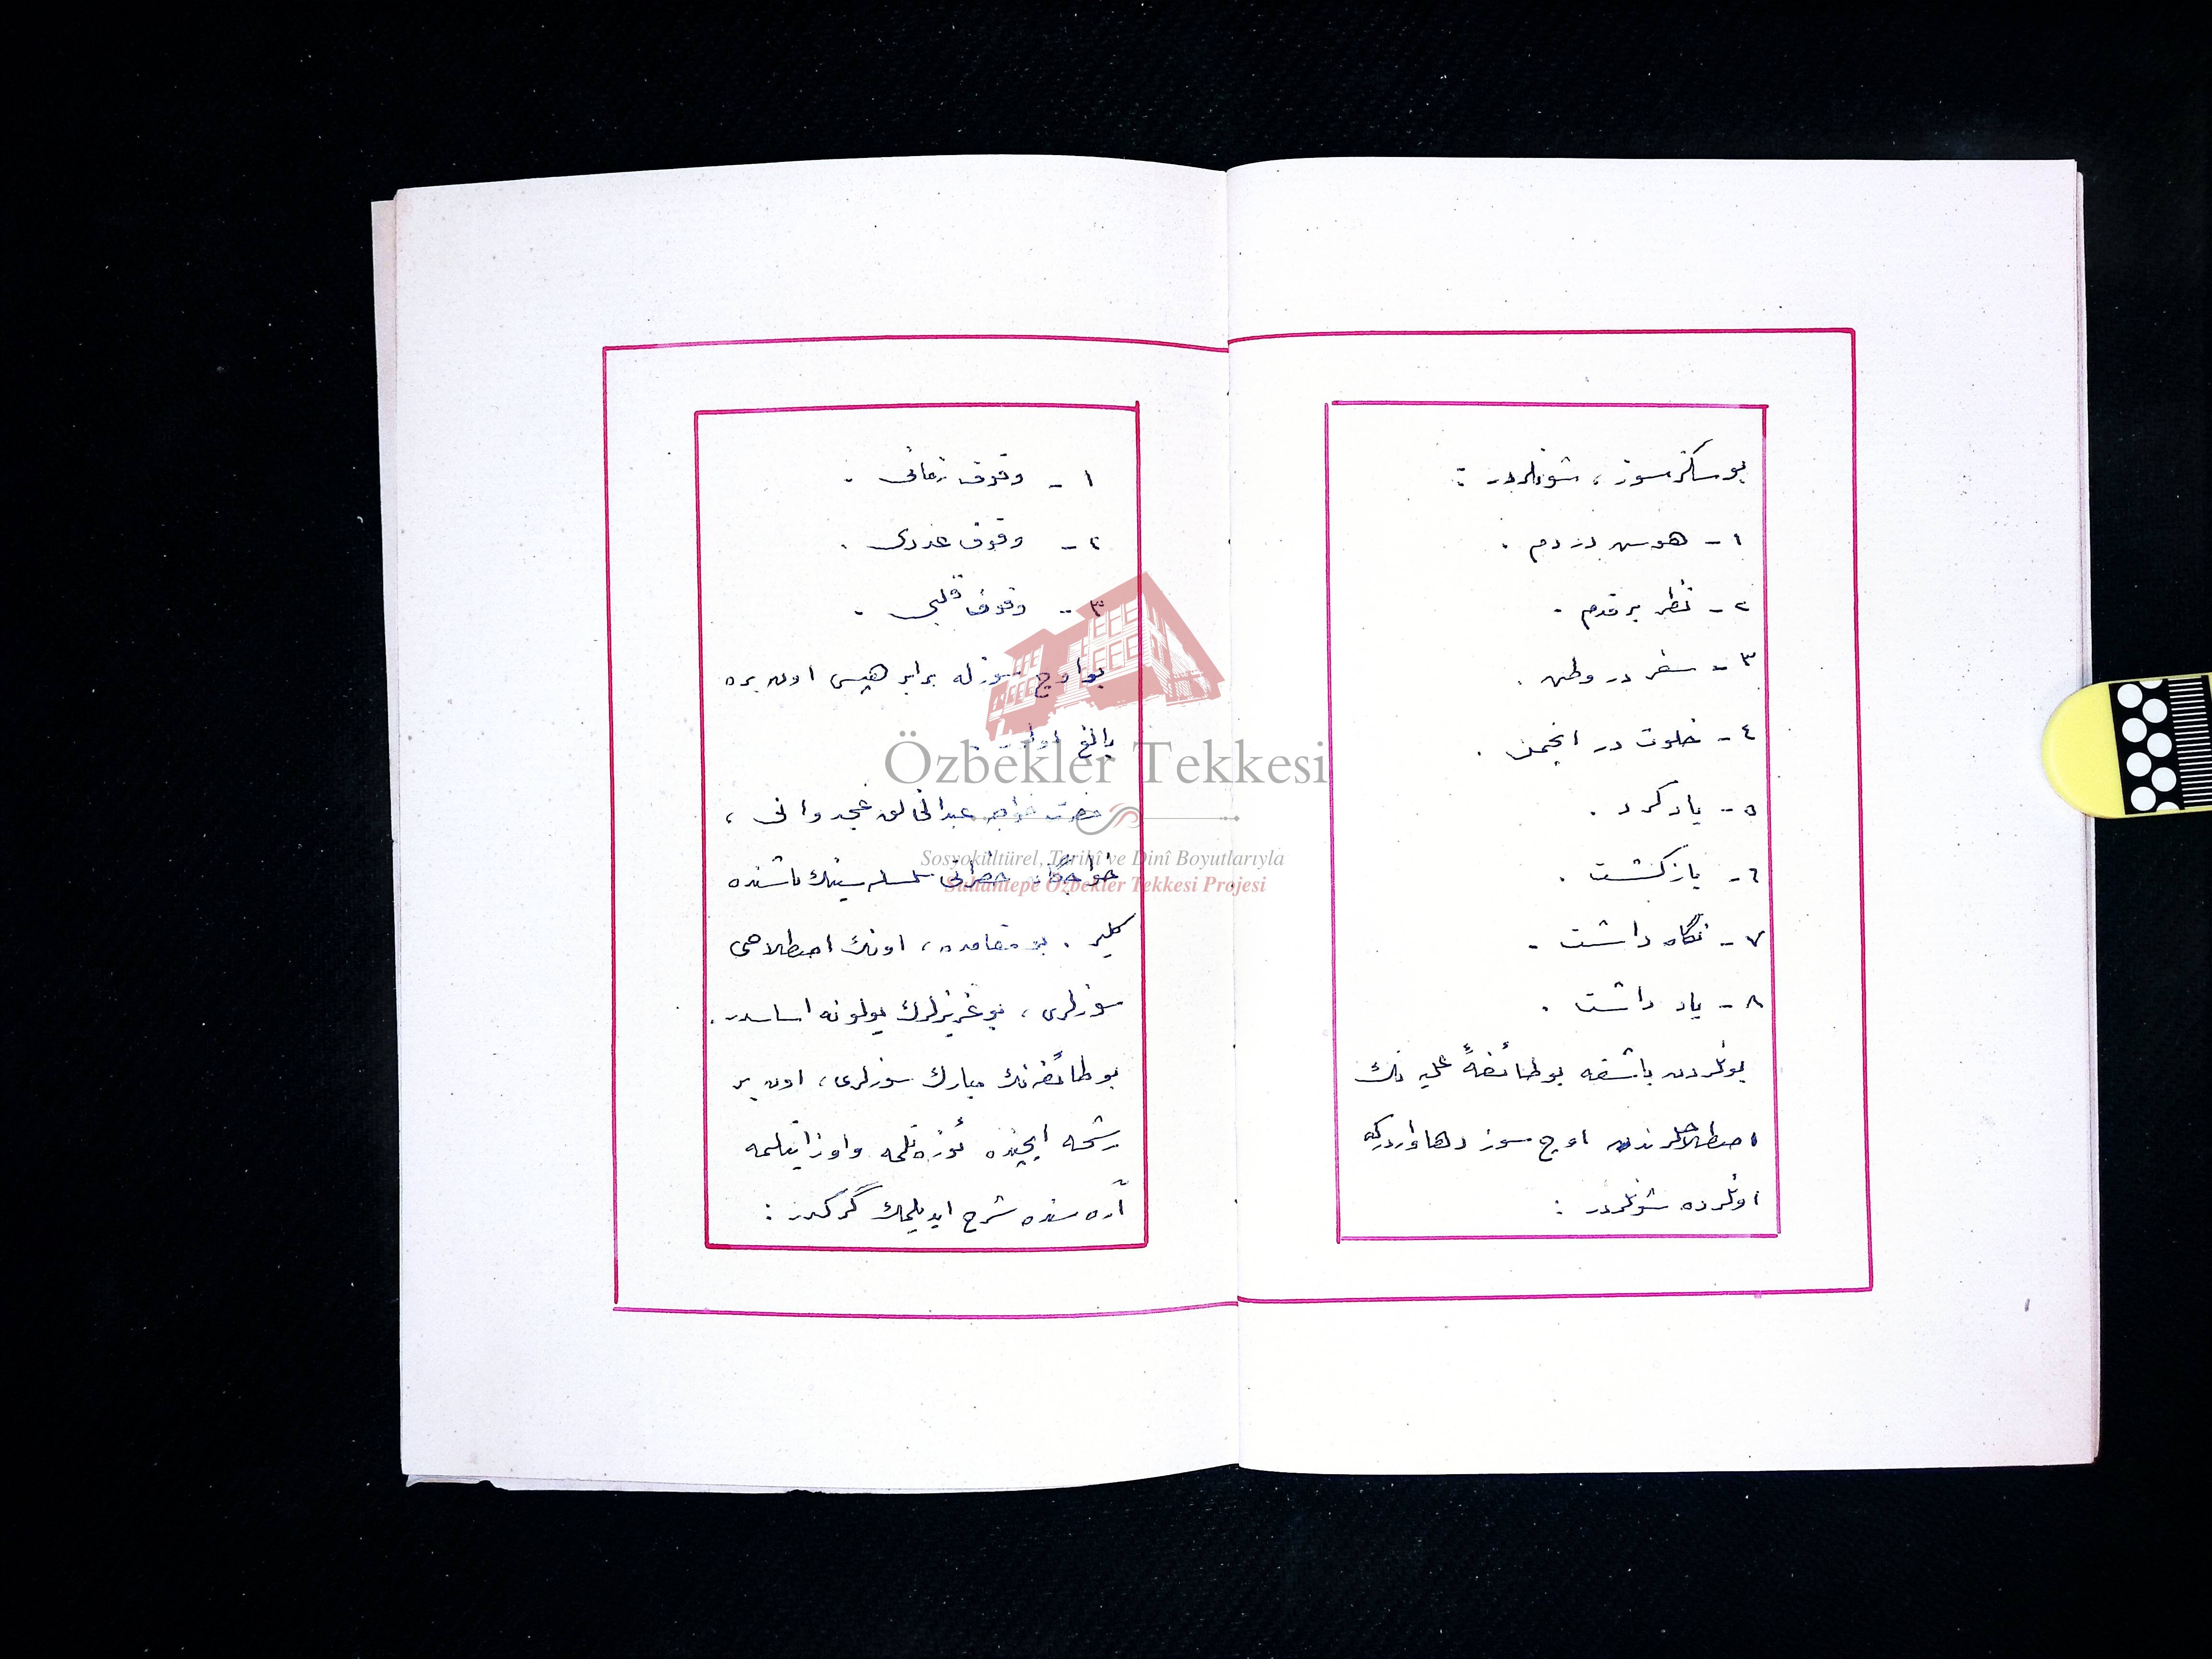 بو سكز سوز ، شونلردر :
١ - هوس در دم .
٢ - نظر بر قدم .
٣ - سفر در وطن .
٤ - خلوت در انجمن .
٥ - ياد كرد .
٦ - باز كشت .
٧ - نگاه داشت .
٨ - ياد داشت .
بونلردن باشقه بو طائفۀ عليه نك
اصطلاحلرندن اوچ سوز دها واردركه
اونلرده شونلردر :
١ - وقوف زمانى .
٢ - وقوف عددى .
٣ - وقوف قلبى .
بو اوچ سوزله برابر هپسى اون بره
بالغ اولور .
حضرت خواجه عبدالخالق غجدوانى ،
خواجگان حضراتى سلسله سينك باشنده
كلير . بو مقامده ، اونك اصطلاحى
سوزلرى ، بو عزيزلرك يولونه اساسدر .
بو طائفه نك مبارك سوزلرى ، اون بر
رشحه ايچنده ئوزه تلمه و اوزاتيلمه
آره سنده شرح ايديلمك گركدر :
Özbekler Tekkesi
Sosyokültürel, Tarihî ve Dinî Boyutlarıyla
Sultantepe Özbekler Tekkesi Projesi